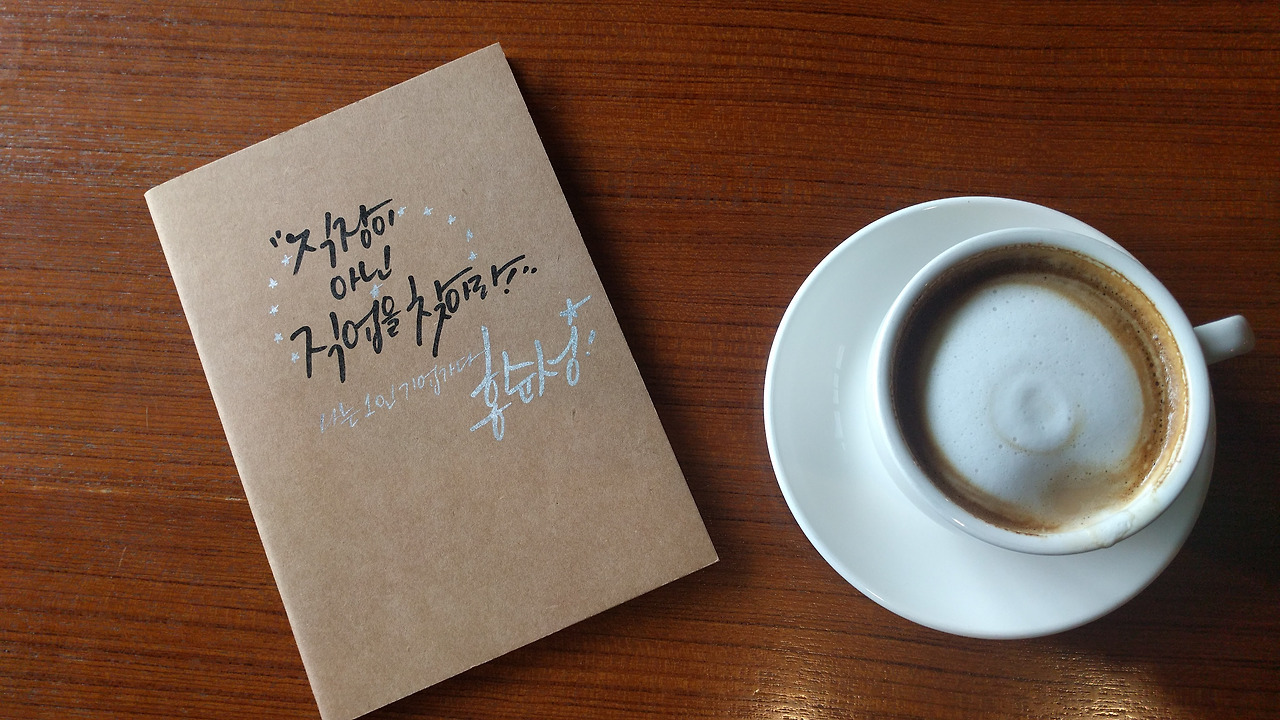 "직장이
아닌
직업을 찾아라!"
나는 1인 기업가다
홍순성